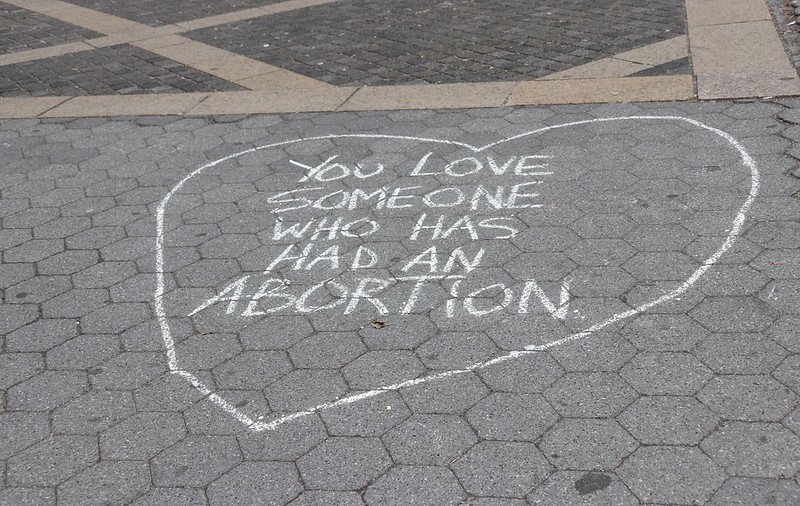 YOU LOVE
SOMEONE
WHO HAS
HAD AN
ABORTION